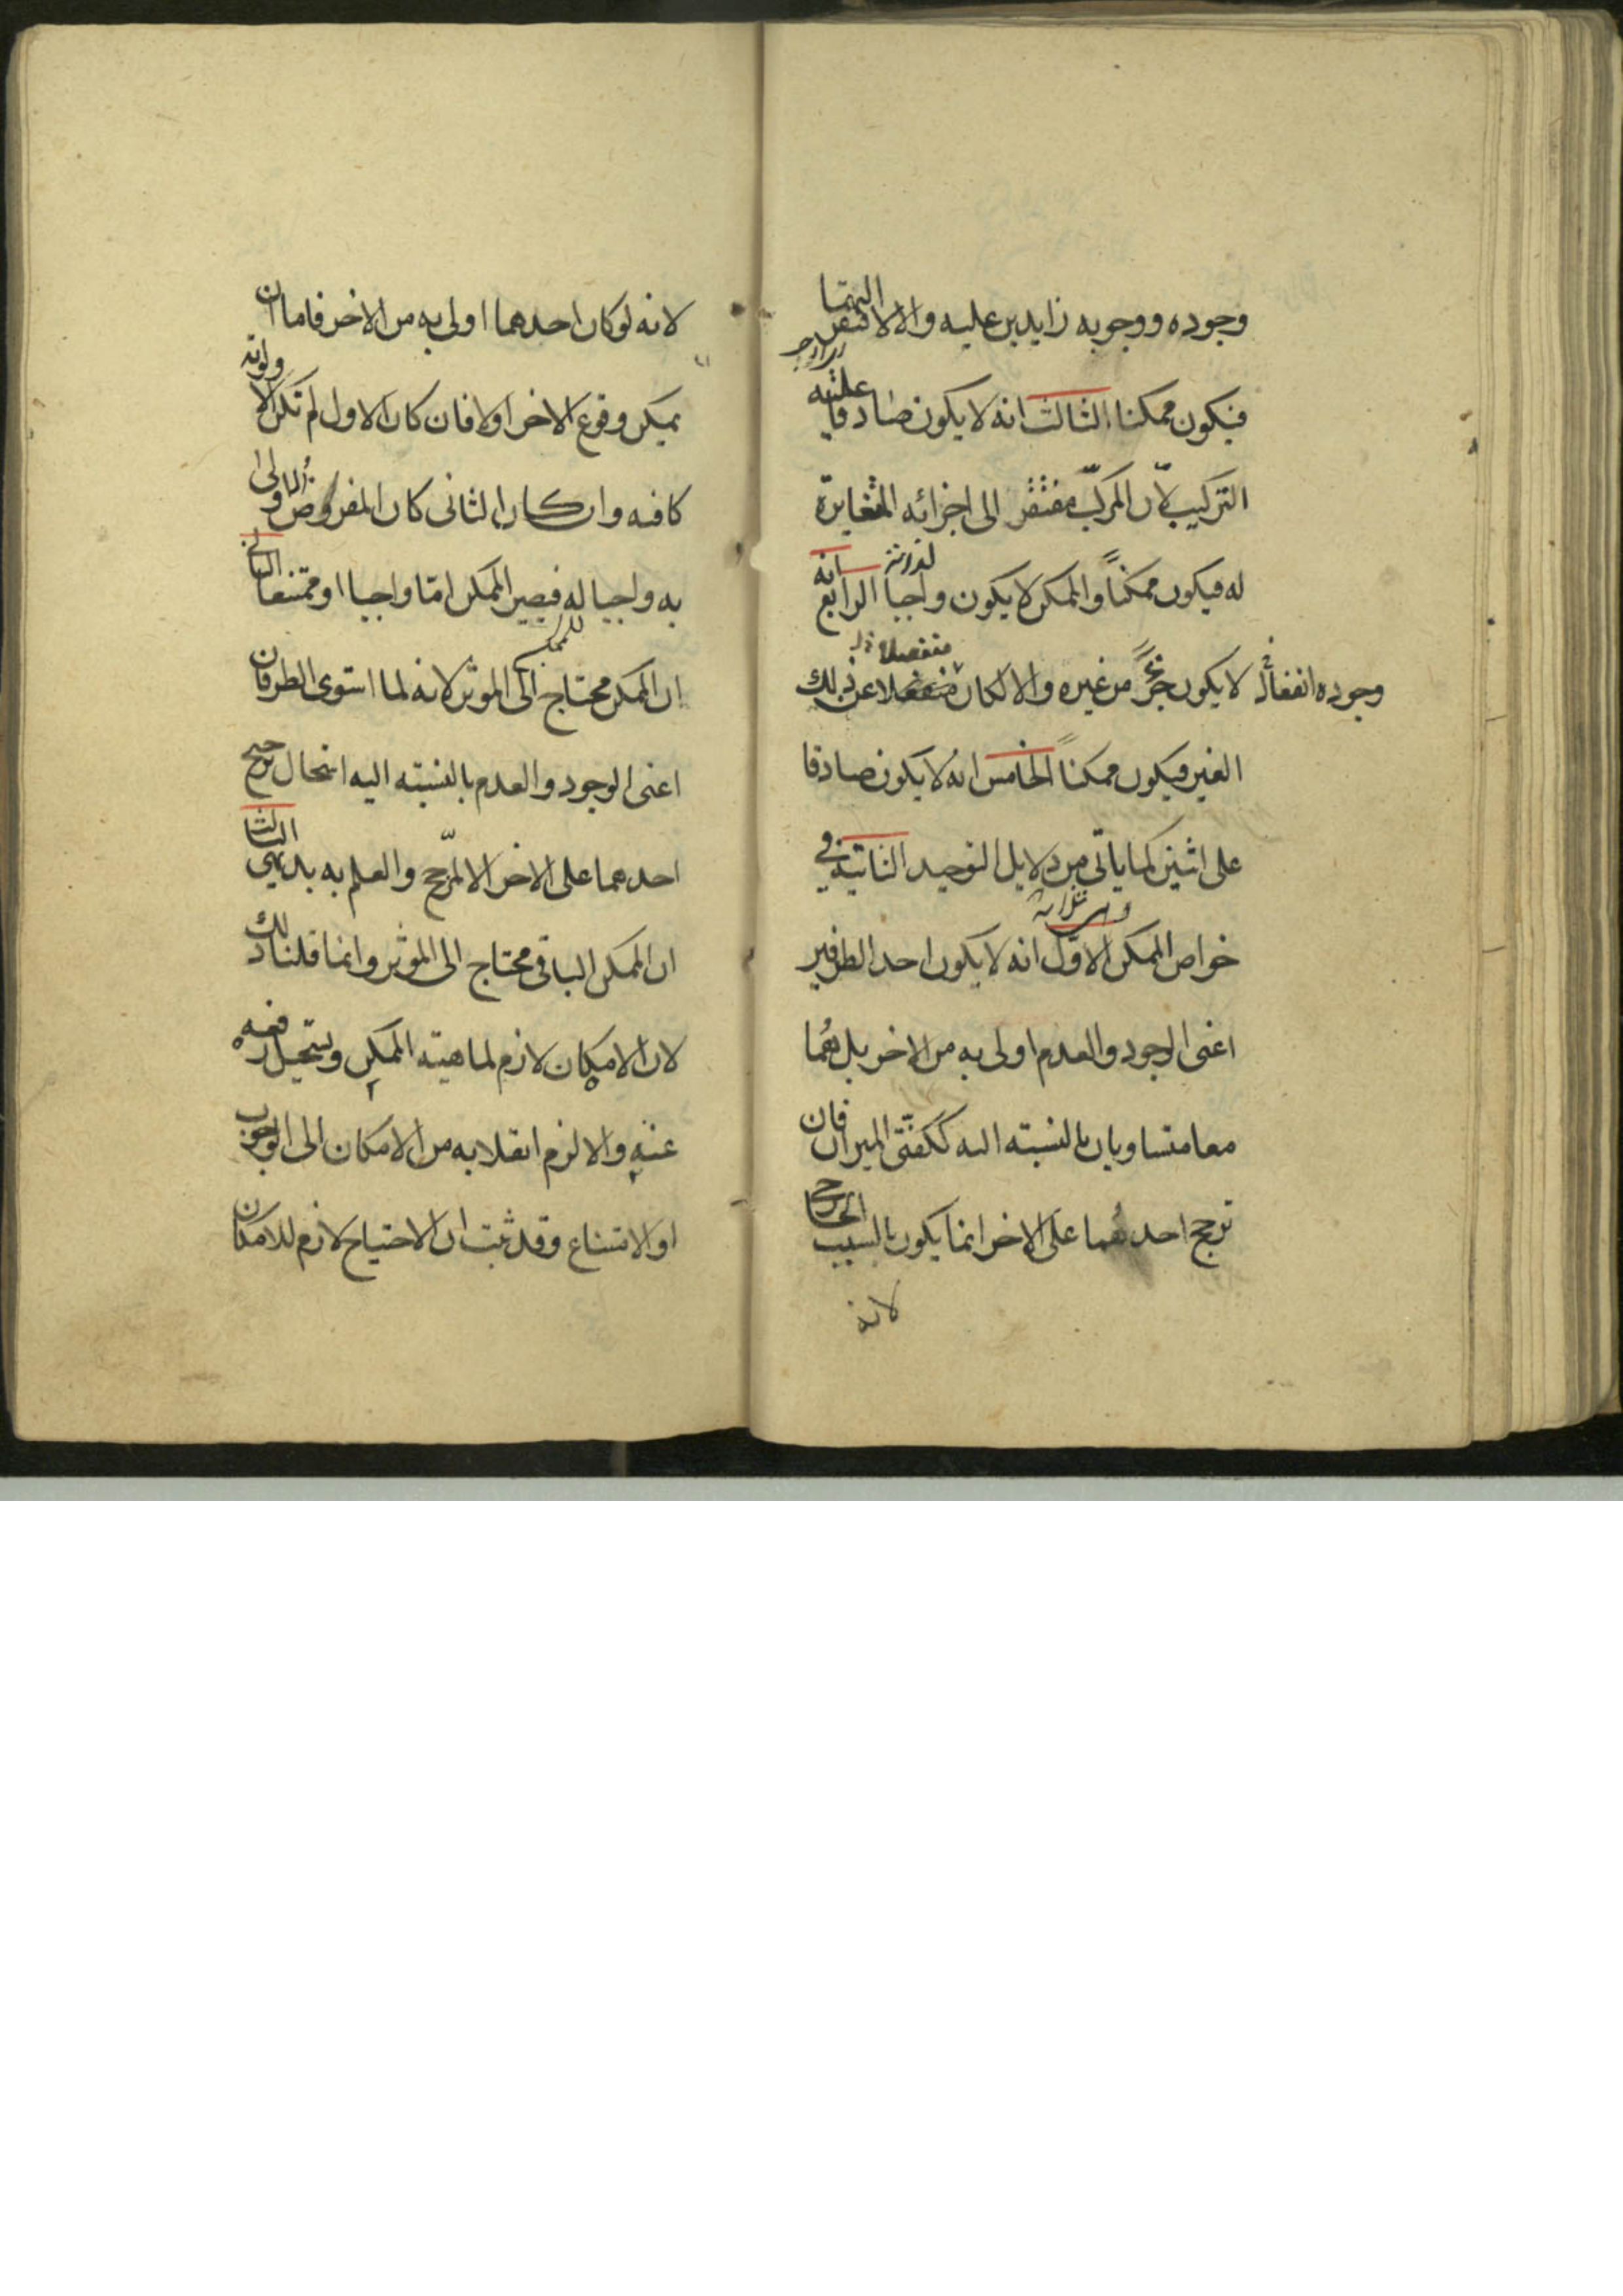 وجوده ووجوبه زايدين عليه والا لافتقر اليهما
فيكون ممكنا الثالث انه لا يكون صادقا عليه
التركيب لان المركب مفتقر الى اجزائه المتغايرة
له فيكون ممكناً والممكن لا يكون واجبا لذاته الرابع انه
لا يكون جزءً من غيره والا لكان منفصلا عن ذلك
وجوده انفعال
منفصلا
الغير فيكون ممكناً الخامس انه لا يكون صادقا
على اثنين كما ياتى من دلايل التوحيد الثانية في
وهي ثلاثة
خواص الممكن الاول انه لا يكون احد الطرفين
اعنى الوجود والعدم اولى به من الاخر بل هُما
معا متساويان بالنسبته اليه ككفتى الميزان فان
ترجح احدهُما على الاخر انما يكون بالسبب الخارجى
لانه
لانه لو كان احدهما اولى به من الاخر فاما ان
يمكن وقوع الاخر اولا فان كان الاول لم تكن الاولوية
كافيه وان كان الثانى كان المفروض الاولى
به واجبا له فيصير الممكن امّا واجبا او ممتنعا الثانى
ان الممكن محتاج الى الموثر لانه لما استوى الطرفان
اعنى الوجود والعدم بالنسبته اليه استحال ترجيح
احدهما على الاخر الا لمرّجح والعلم به بديهي الثالث
ان الممكن الباقى محتاج الى الموثر وانما قلنا ذلك
لان الامكان لازم لماهيته الممكن ويستحيل رفعه
عنه والا لزم انقلابه من الامكان الى الوجوب
او الامتناع وقد ثبت ان الاحتياج لازم للامكان